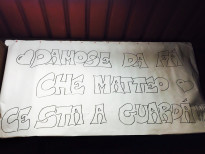 DAMOSE DA FÀ
CHE MATTEO
CE STA A GUARDÀ